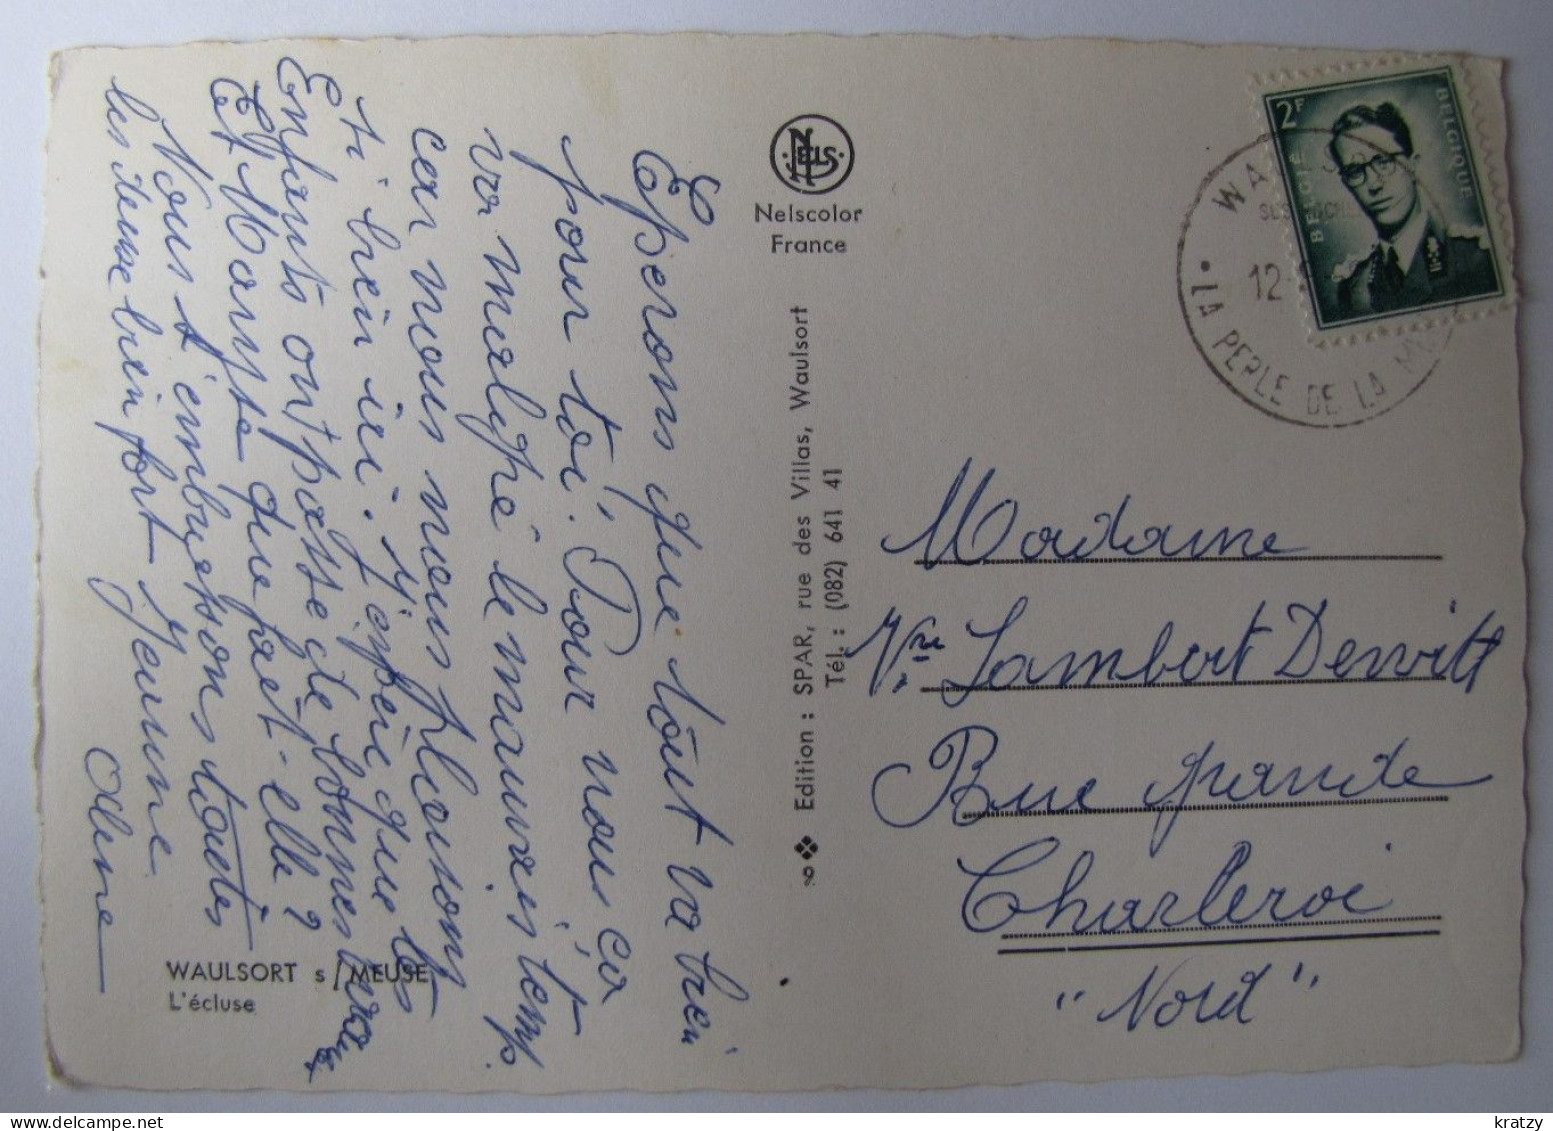 Esperons que tout va bien
pour toi. Pour nous ça
va malgré le mauvais temp.
car nous nous plaisons
ti bien ici. J'espère que les
Enfants ont passé de bonnes
Et Maryse que fait-elle ?
Nous t'embrassons toutes
les deux bien fort Jeanne
Oline
WAULSORT s/MEUSE
L'écluse
NELS
Nelscolor
France
9 ❖ Edition : SPAR, rue des Villas, Waulsort
Tél. : (082) 641 41
2F
BELGIQUE
BELGIË
WA
12
• LA PERLE DE LA M
Madame
Vve Lambert Dewitt
Rue grande
Charleroi
"Nord"
kratzy